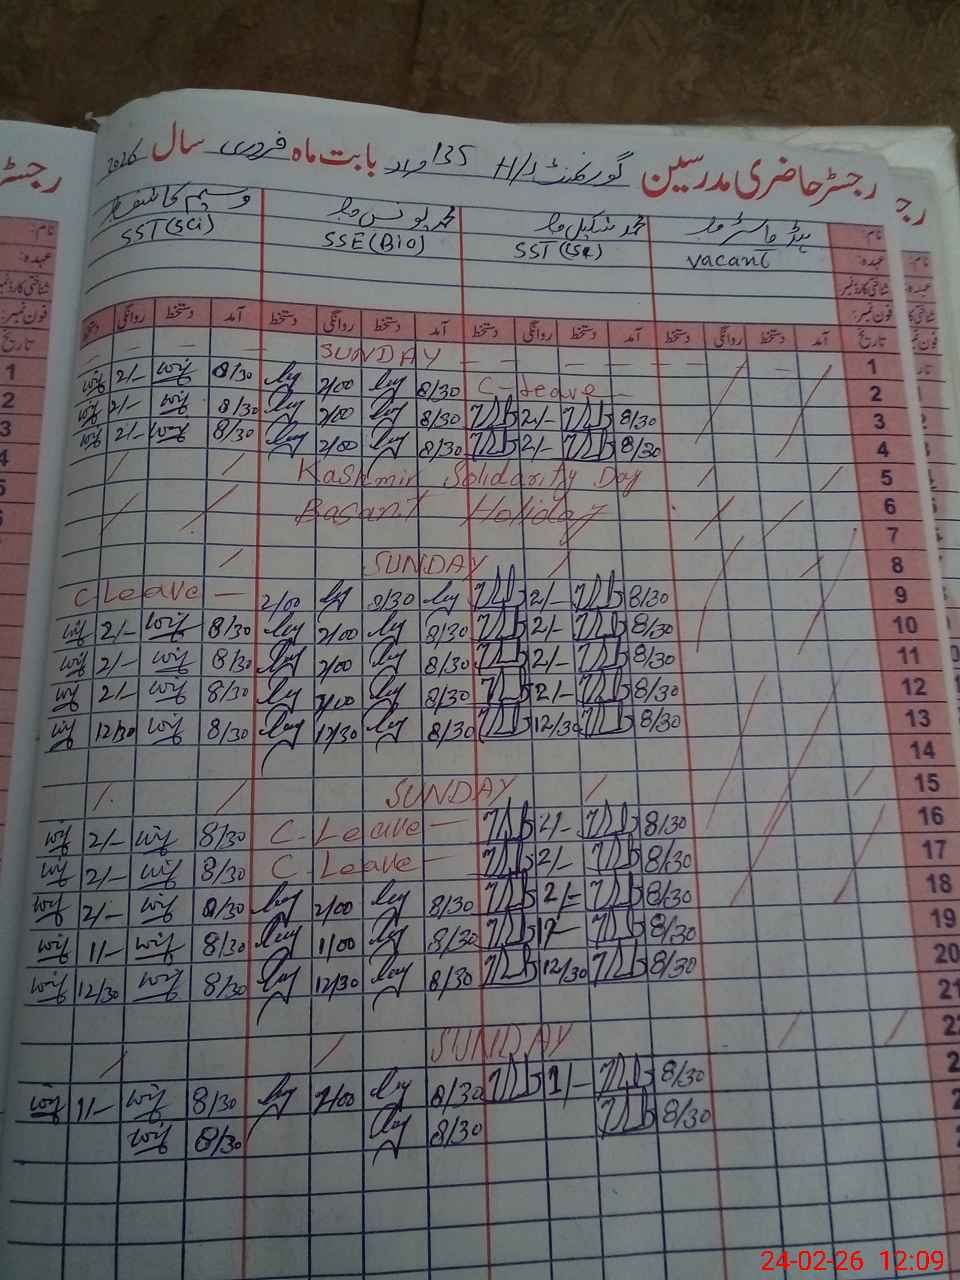 رجسٹر حاضری مدرسین گورنمنٹ H/S 135 مراد بابت ماہ فروری سال 2026
نام: ہیڈ ماسٹر محمد شکیل محمد یونس وسیم کاشف
عہدہ: vacant SST (Sc) SSE (Bio) SST (Sci)
شناختی کارڈ نمبر:
فون نمبر:
تاریخ آمد دستخط روانگی دستخط آمد دستخط روانگی دستخط آمد دستخط روانگی دستخط آمد دستخط روانگی دستخط
1 SUNDAY
2 C-Leave 8/30 2/00 8/30 2/-
3 8/30 2/- 8/30 2/00 8/30 2/-
4 8/30 2/- 8/30 2/00 8/30 2/-
5 Kashmir Solidarity Day
6 Basant Holiday
7
8 SUNDAY
9 8/30 2/- 8/30 2/00 C-Leave
10 8/30 2/- 8/30 2/00 8/30 2/-
11 8/30 2/- 8/30 2/00 8/30 2/-
12 8/30 2/- 8/30 2/00 8/30 2/-
13 8/30 12/30 8/30 12/30 8/30 12/30
14
15 SUNDAY
16 8/30 2/- C-Leave 8/30 2/-
17 8/30 2/- C Leave 8/30 2/-
18 8/30 2/- 8/30 2/00 8/30 2/-
19 8/30 8/30 1/00 8/30 1/-
20 8/30 12/30 8/30 12/30 8/30 12/30
21
22 SUNDAY
8/30 1/- 8/30 8/30 1/-
8/30 8/30 8/30
24-02-26 12:09